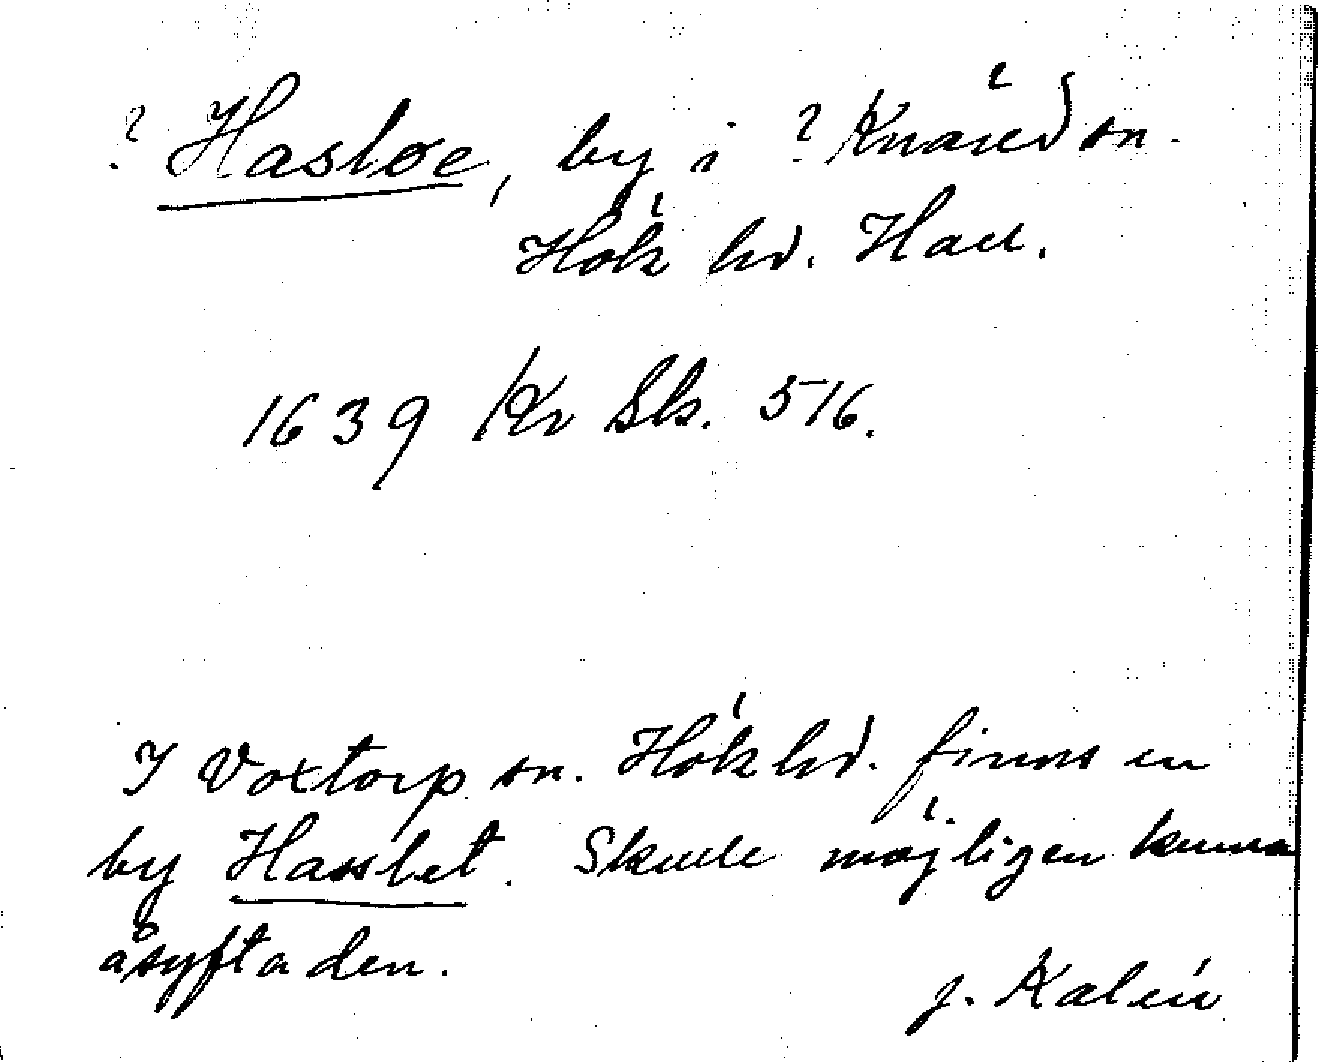 ? Hasløe, by i ? Knäred sn.
Hök hd. Hall.
1639 Kr Sk. 516.
I Voxtorp sn. Hök hd. finns en
by Hasslet. Skulle möjligen kunna
åsyfta den.
J. Kalén